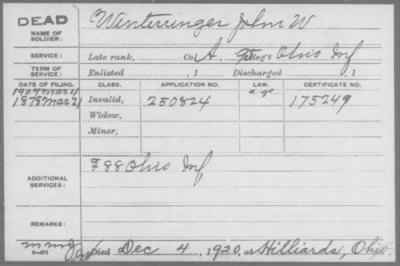 DEAD Winterringer John W
NAME OF SOLDIER:
SERVICE: Late rank, Co. A, Reg't Ohio Inf
TERM OF SERVICE: Enlisted , 1 Discharged , 1
DATE OF FILING. CLASS. APPLICATION NO. LAW. CERTIFICATE NO.
1907 Mar 4 age
1878 Mar 21 Invalid, 250824 175249
Widow,
Minor,
ADDITIONAL SERVICES: F 88 Ohio Inf
REMARKS:
Died Dec 4, 1920, at Hilliards, Ohio.